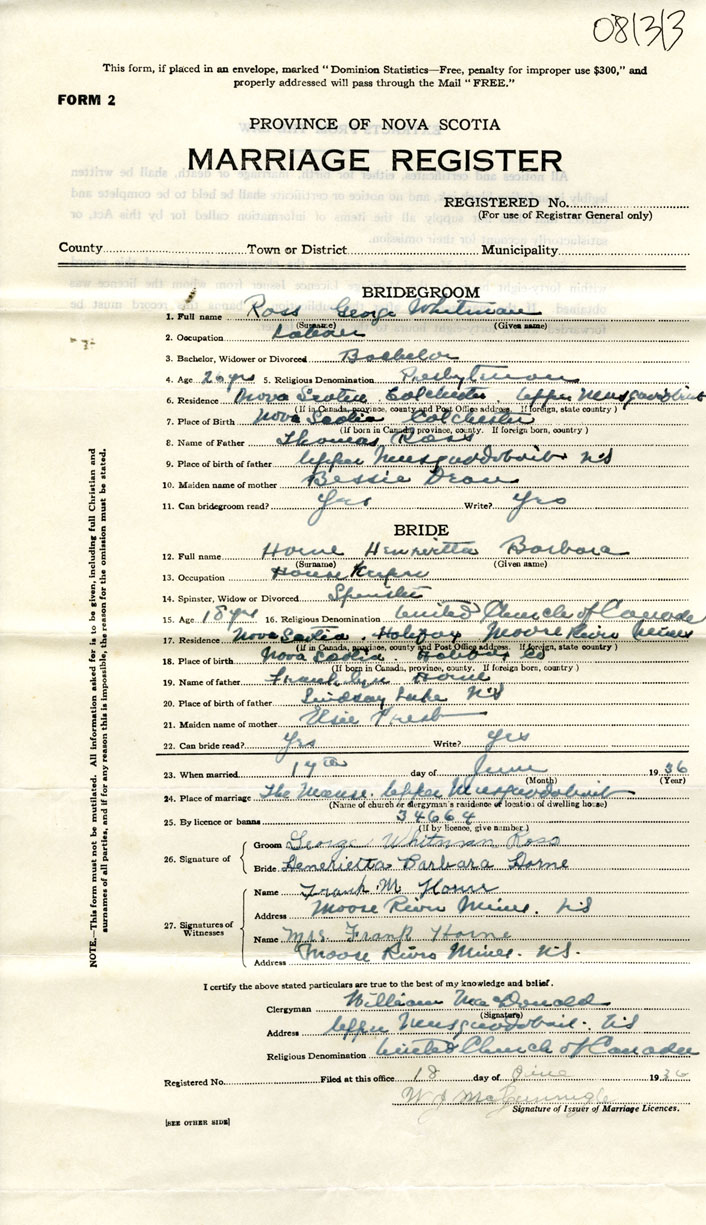 08133
This form, if placed in an envelope, marked "Dominion Statistics—Free, penalty for improper use $300," and
properly addressed will pass through the Mail "FREE."
FORM 2
PROVINCE OF NOVA SCOTIA
MARRIAGE REGISTER
REGISTERED No.
(For use of Registrar General only)
County Town or District Municipality
BRIDEGROOM
1. Full name Ross George Whitman
(Surname) (Given name)
2. Occupation Labour
3. Bachelor, Widower or Divorced Bachelor
4. Age 26 yrs 5. Religious Denomination Presbyterian
6. Residence Nova Scotia Colchester Upper Musquodoboit
(If in Canada, province, county and Post Office address. If foreign, state country)
7. Place of Birth Nova Scotia Colchester
(If born in Canada, province, county. If foreign born, country)
8. Name of Father Thomas Ross
9. Place of birth of father Upper Musquodoboit N S
10. Maiden name of mother Bessie Dean
11. Can bridegroom read? Yes Write? Yes
BRIDE
12. Full name Horne Henrietta Barbara
(Surname) (Given name)
13. Occupation House Keeper
14. Spinster, Widow or Divorced Spinster
15. Age 18 yrs 16. Religious Denomination United Church of Canada
17. Residence Nova Scotia. Halifax Moose River Mines
(If in Canada, province, county and Post Office address. If foreign, state country)
18. Place of birth Nova Scotia. Halifax Co
(If born in Canada, province, county. If foreign born, country)
19. Name of father Horne
20. Place of birth of father Lindsay Lake N S
21. Maiden name of mother Elsie
22. Can bride read? Yes Write? Yes
23. When married 17th day of June 1936
(Month) (Year)
24. Place of marriage The Manse. Upper Musquodoboit
(Name of church or clergyman's residence or location of dwelling house)
25. By licence or banns 34664
(If by licence, give number)
26. Signature of
Groom George Whitman Ross
Bride Henrietta Barbara Horne
27. Signatures of Witnesses
Name Frank M Horne
Address Moose River Mines. N S
Name Mrs. Frank Horne
Address Moose River Mines. N.S.
I certify the above stated particulars are true to the best of my knowledge and belief.
Clergyman William MacDonald
(Signature)
Address Upper Musquodoboit. N S
Religious Denomination United Church of Canada
Registered No. Filed at this office 18 day of June 1936
Signature of Issuer of Marriage Licences.
[SEE OTHER SIDE]
NOTE.—This form must not be mutilated. All information asked for is to be given, including full Christian and
surnames of all parties, and if for any reason this is impossible, the reason for the omission must be stated.